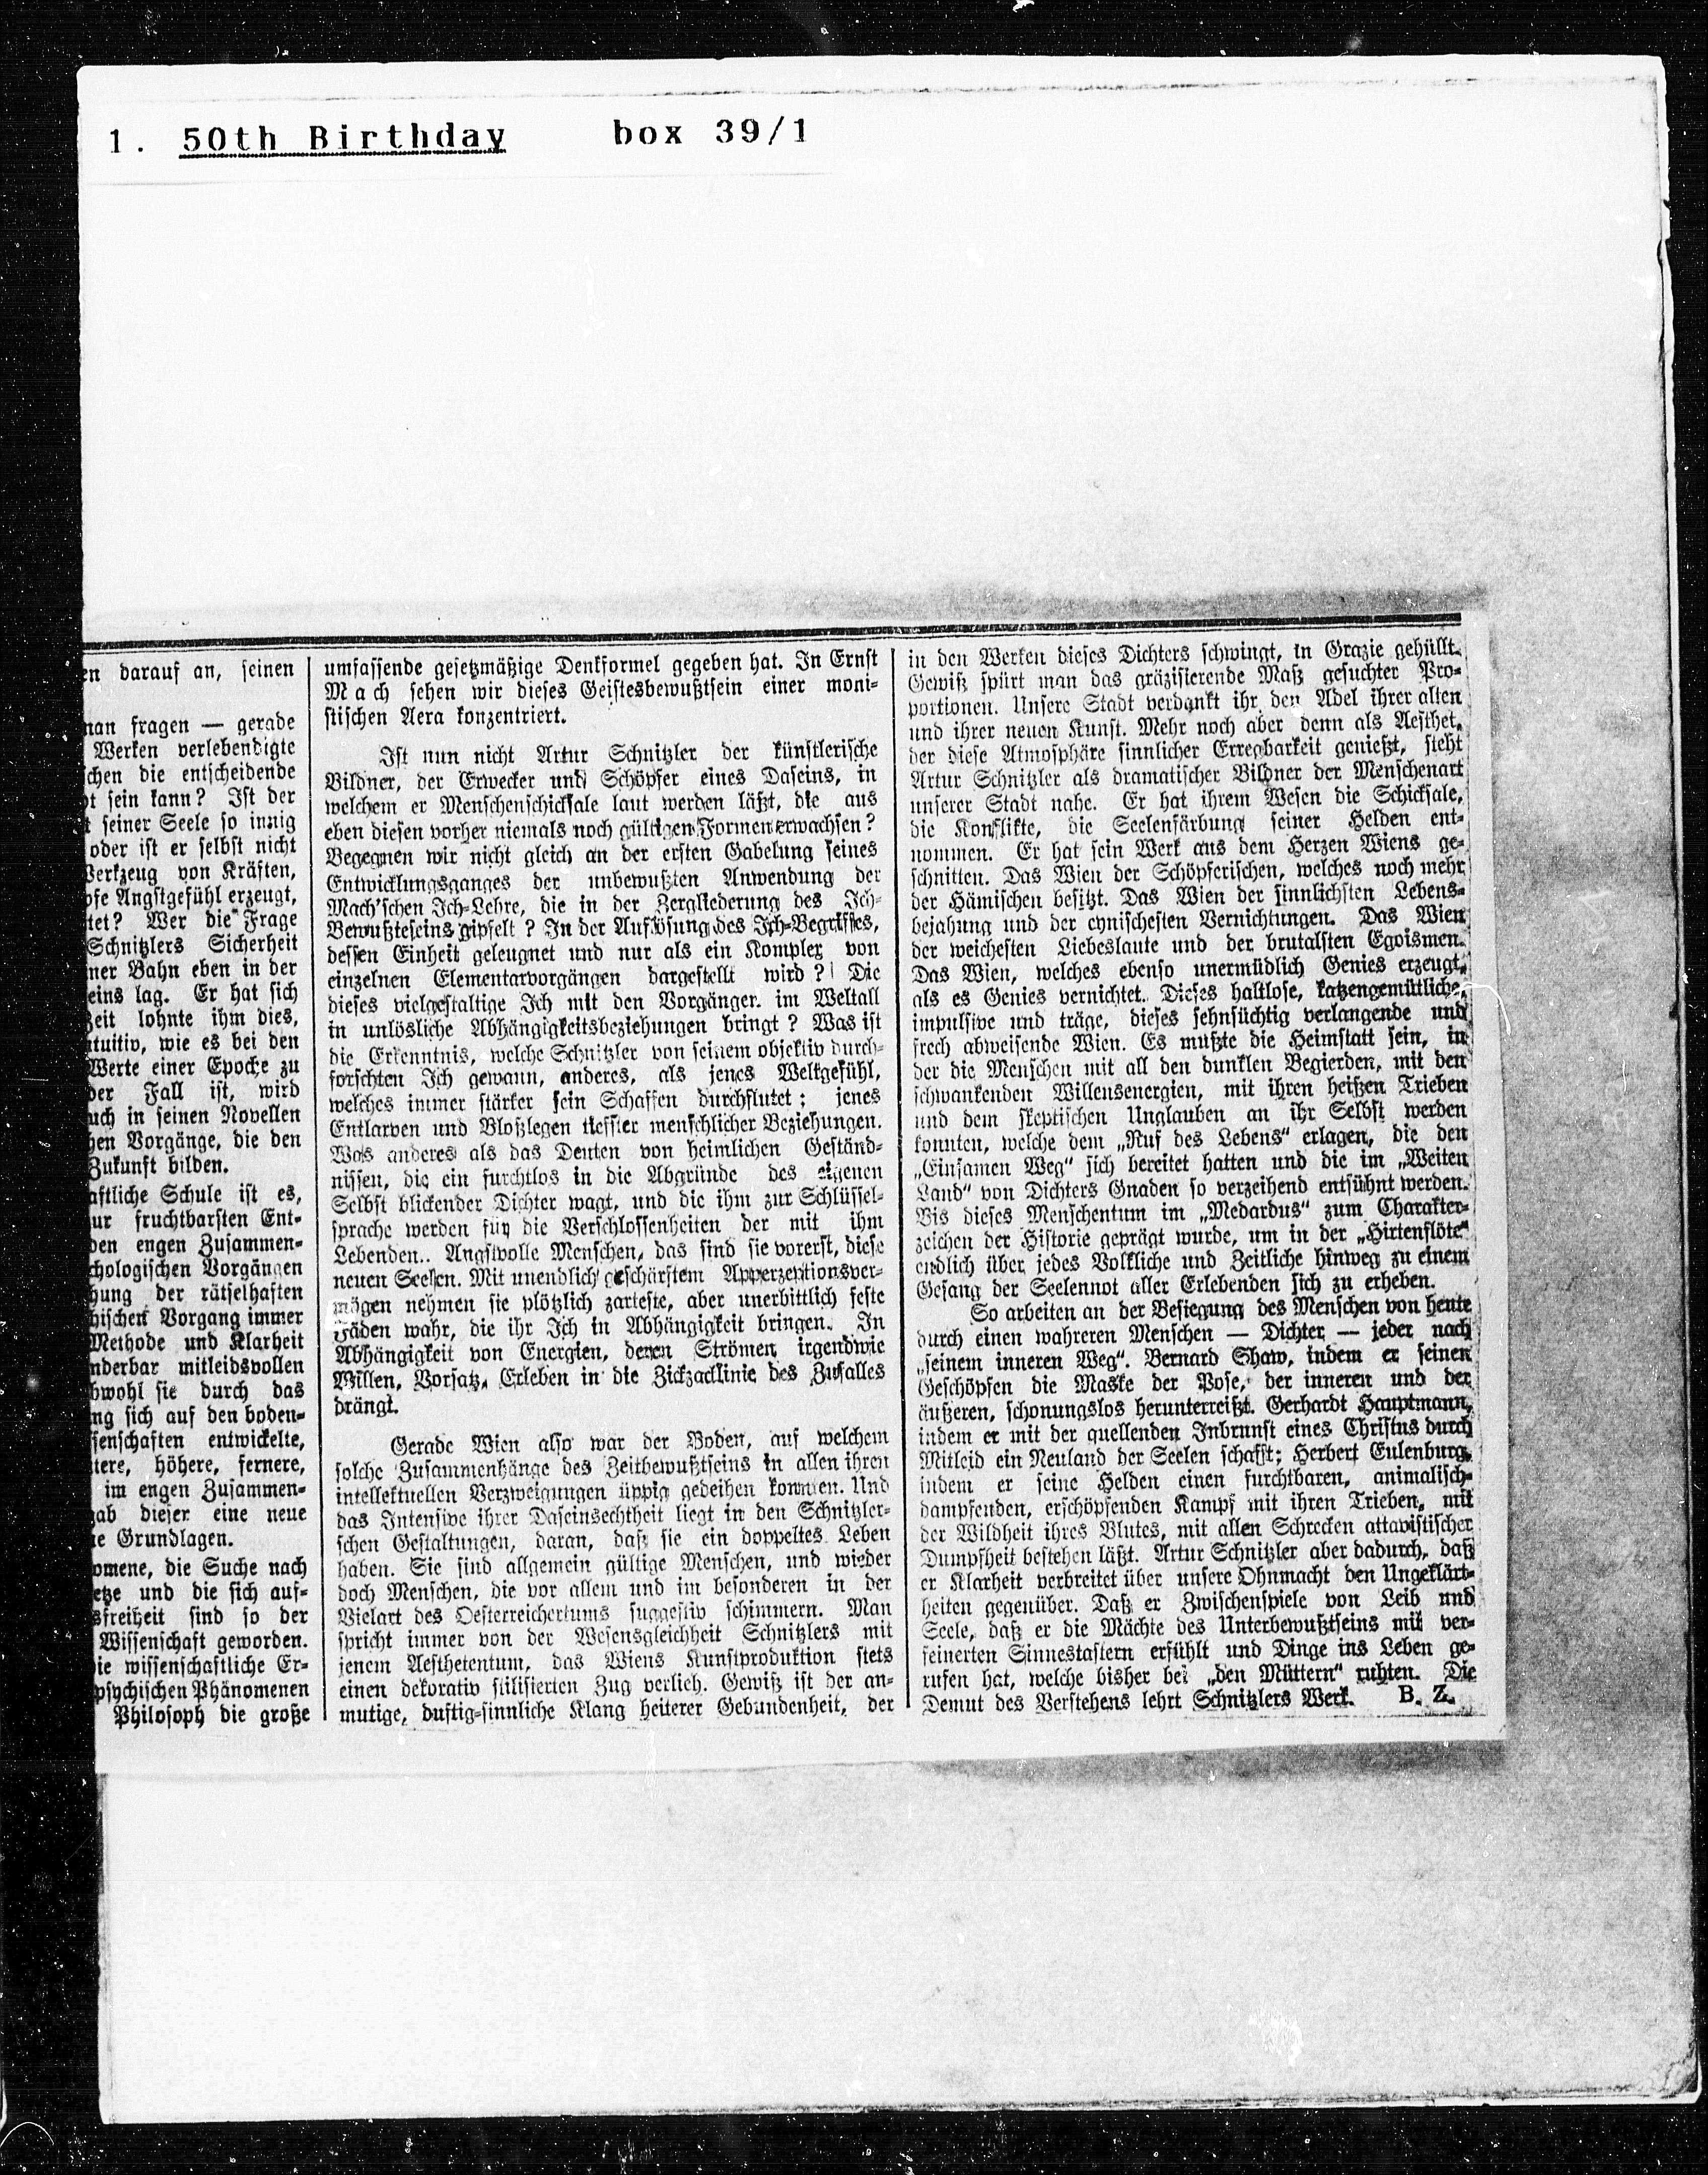 1. 50th Birthday box 39/1
en darauf an, seinen
man fragen — gerade
Werken verlebendigte
schen die entscheidende
sein kann? Ist der
seiner Seele so innig
oder ist er selbst nicht
Werkzeug von Kräften,
Angstgefühl erzeugt,
tet? Wer die Frage
Schnitzlers Sicherheit
ner Bahn eben in der
eins lag. Er hat sich
Zeit lohnte ihm dies,
ntuitiv, wie es bei den
Werte einer Epoche zu
der Fall ist, wird
uch in seinen Novellen
hen Vorgänge, die den
Zukunft bilden.
aftliche Schule ist es,
ur fruchtbarsten Ent-
den engen Zusammen-
chologischen Vorgängen
hung der rätselhaften
hischen Vorgang immer
Methode und Klarheit
nderbar mitleidsvollen
bwohl sie durch das
ng sich auf den boden-
senschaften entwickelte,
tere, höhere, fernere,
im engen Zusammen-
gab dieser eine neue
te Grundlagen.
omene, die Suche nach
etze und die sich auf-
sfreiheit sind so der
Wissenschaft geworden.
ie wissenschaftliche Er-
psychischen Phänomenen
Philosoph die große
umfassende gesetzmäßige Denkformel gegeben hat. In Ernst
Mach sehen wir dieses Geistesbewußtsein einer moni-
stischen Aera konzentriert.
Ist nun nicht Artur Schnitzler der künstlerische
Bildner, der Erwecker und Schöpfer eines Daseins, in
welchem er Menschenschicksale laut werden läßt, die aus
eben diesen vorher niemals noch gültigen Formen erwachsen?
Begegnen wir nicht gleich an der ersten Gabelung seines
Entwicklungsganges der unbewußten Anwendung der
Mach'schen Ich-Lehre, die in der Zergliederung des Ich-
Bewußtseins gipfelt? In der Auflösung des Ich-Begriffes,
dessen Einheit geleugnet und nur als ein Komplex von
einzelnen Elementarvorgängen dargestellt wird? Die
dieses vielgestaltige Ich mit den Vorgänger. im Weltall
in unlösliche Abhängigkeitsbeziehungen bringt? Was ist
die Erkenntnis, welche Schnitzler von seinem objektiv durch-
forschten Ich gewann, anderes, als jenes Weltgefühl,
welches immer stärker sein Schaffen durchflutet; jenes
Entlarven und Bloßlegen tiefster menschlicher Beziehungen.
Was anderes als das Deuten von heimlichen Geständ-
nissen, die ein furchtlos in die Abgründe des eigenen
Selbst blickender Dichter wagt, und die ihm zur Schlüssel-
sprache werden für die Verschlossenheiten der mit ihm
Lebenden.. Angstvolle Menschen, das sind sie vorerst, diese
neuen Seelen. Mit unendlich geschärftem Apperzeptionsver-
mögen nehmen sie plötzlich zarteste, aber unerbittlich feste
Fäden wahr, die ihr Ich in Abhängigkeit bringen. In
Abhängigkeit von Energien, deren Strömen irgendwie
Willen, Vorsatz, Erleben in die Zickzacklinie des Zufalles
drängt.
Gerade Wien also war der Boden, auf welchem
solche Zusammenhänge des Zeitbewußtseins in allen ihren
intellektuellen Verzweigungen üppig gedeihen konnten. Und
das Intensive ihrer Daseinsechtheit liegt in den Schnitzler-
schen Gestaltungen, daran, daß sie ein doppeltes Leben
haben. Sie sind allgemein gültige Menschen, und wieder
doch Menschen, die vor allem und im besonderen in der
Vielart des Oesterreichertums suggestiv schimmern. Man
spricht immer von der Wesensgleichheit Schnitzlers mit
jenem Aesthetentum, das Wiens Kunstproduktion stets
einen dekorativ stilisierten Zug verlieh. Gewiß ist der an-
mutige, duftig-sinnliche Klang heiterer Gebundenheit, der
in den Werken dieses Dichters schwingt, in Grazie gehüllt.
Gewiß spürt man das gräzisierende Maß gesuchter Pro-
portionen. Unsere Stadt verdankt ihr den Adel ihrer alten
und ihrer neuen Kunst. Mehr noch aber denn als Aesthet,
der diese Atmosphäre sinnlicher Erregbarkeit genießt, steht
Artur Schnitzler als dramatischer Bildner der Menschenart
unserer Stadt nahe. Er hat ihrem Wesen die Schicksale,
die Konflikte, die Seelenfärbung seiner Helden ent-
nommen. Er hat sein Werk aus dem Herzen Wiens ge-
schnitten. Das Wien der Schöpferischen, welches noch mehr
der Hämischen besitzt. Das Wien der sinnlichsten Lebens-
bejahung und der cynischesten Vernichtungen. Das Wien
der weichesten Liebeslaute und der brutalsten Egoismen.
Das Wien, welches ebenso unermüdlich Genies erzeugt,
als es Genies vernichtet. Dieses haltlose, katzengemütliche,
impulsive und träge, dieses sehnsüchtig verlangende und
frech abweisende Wien. Es mußte die Heimstatt sein, in
der die Menschen mit all den dunklen Begierden, mit den
schwankenden Willensenergien, mit ihren heißen Trieben
und dem skeptischen Unglauben an ihr Selbst werden
konnten, welche dem „Ruf des Lebens“ erlagen, die den
„Einsamen Weg“ sich bereitet hatten und die im „Weiten
Land“ von Dichters Gnaden so verzeihend entsühnt werden.
Bis dieses Menschentum im „Medardus“ zum Charakter-
zeichen der Historie geprägt wurde, um in der „Hirtenflöte“
endlich über jedes Volkliche und Zeitliche hinweg zu einem
Gesang der Seelennot aller Erlebenden sich zu erheben.
So arbeiten an der Besiegung des Menschen von heute
durch einen wahreren Menschen — Dichter — jeder nach
„seinem inneren Weg“. Bernard Shaw, indem er seinen
Geschöpfen die Maske der Pose, der inneren und der
äußeren, schonungslos herunterreißt. Gerhardt Hauptmann,
indem er mit der quellenden Inbrunst eines Christus durch
Mitleid ein Neuland der Seelen schafft; Herbert Eulenburg,
indem er seine Helden einen furchtbaren, animalisch-
dampfenden, erschöpfenden Kampf mit ihren Trieben, mit
der Wildheit ihres Blutes, mit allen Schrecken attavistischer
Dumpfheit bestehen läßt. Artur Schnitzler aber dadurch, daß
er Klarheit verbreitet über unsere Ohnmacht den Ungeklärt-
heiten gegenüber. Daß er Zwischenspiele von Leib und
Seele, daß er die Mächte des Unterbewußtseins mit ver-
feinerten Sinnestastern erfühlt und Dinge ins Leben ge-
rufen hat, welche bisher bei „den Müttern“ ruhten. Die
Demut des Verstehens lehrt Schnitzlers Werk. B. Z.